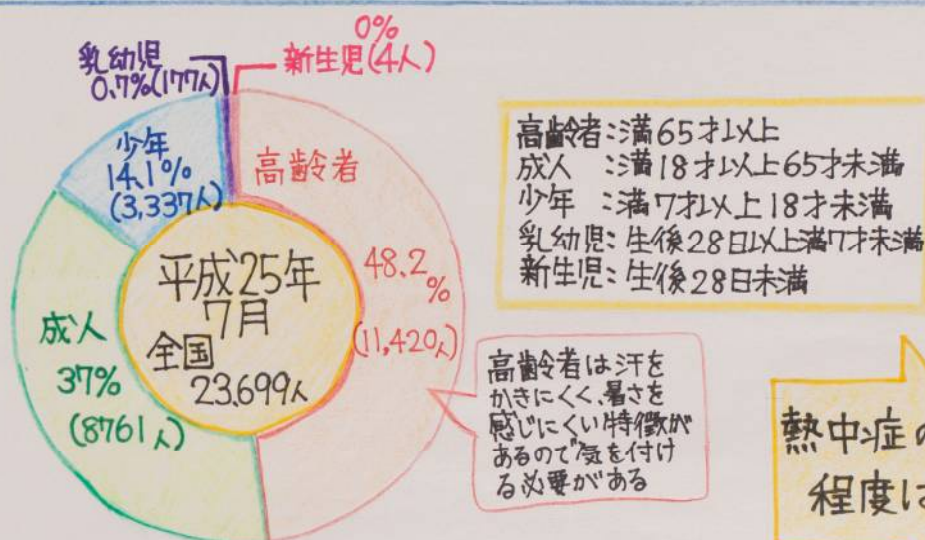 0%
新生児(4人)
乳幼児
0.7%(177人)
少年
14.1%
(3,337人)
高齢者
48.2
%
(11,420人)
成人
37%
(8761人)
平成25年
7月
全国
23,699人
高齢者:満65才以上
成人:満18才以上65才未満
少年:満7才以上18才未満
乳幼児:生後28日以上満7才未満
新生児:生後28日未満
高齢者は汗を
かきにくく、暑さを
感じにくい特徴が
あるので気を付け
る必要がある
熱中症の
程度は